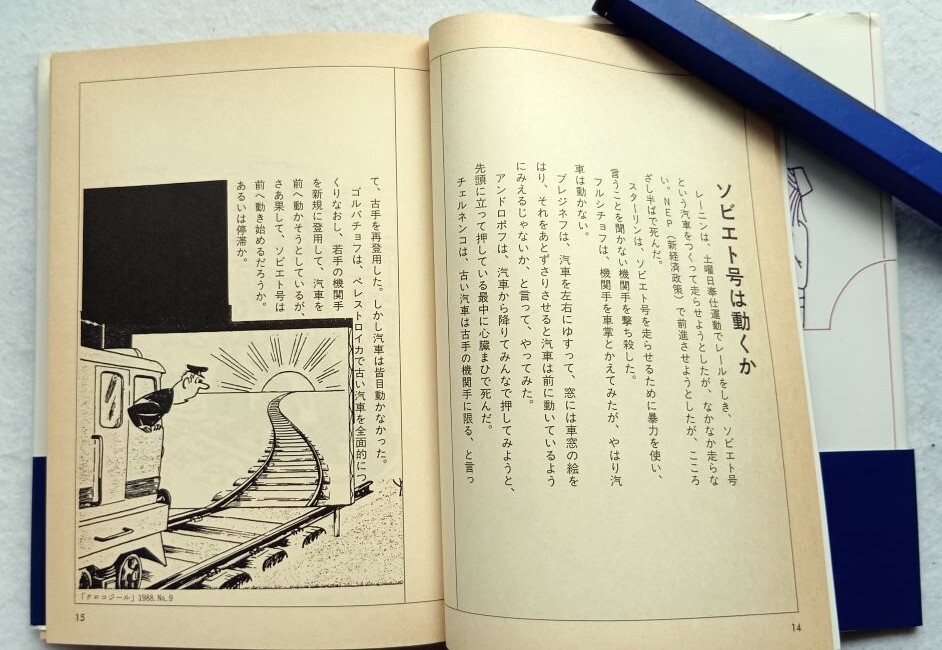 ソビエト号は動くか
レーニンは、土曜日奉仕運動でレールをしき、ソビエト号
という汽車をつくって走らせようとしたが、なかなか走らな
い。NEP（新経済政策）で前進させようとしたが、こころ
ざし半ばで死んだ。
スターリンは、ソビエト号を走らせるために暴力を使い、
言うことを聞かない機関手を撃ち殺した。
フルシチョフは、機関手を車掌とかえてみたが、やはり汽
車は動かない。
ブレジネフは、汽車を左右にゆすって、窓には車窓の絵を
はり、それをあとずさりさせると汽車は前に動いているよう
にみえるじゃないか、と言って、やってみた。
アンドロポフは、汽車から降りてみんなで押してみようと、
先頭に立って押している最中に心臓まひで死んだ。
チェルネンコは、古い汽車は古手の機関手に限る、と言っ
14
て、古手を再登用した。しかし汽車は皆目動かなかった。
ゴルバチョフは、ペレストロイカで古い汽車を全面的につ
くりなおし、若手の機関手
を新規に登用して、汽車を
前へ動かそうとしているが、
さあ果して、ソビエト号は
前へ動き始めるだろうか。
あるいは停滞か。
「クロコジール」1988. No. 9
15